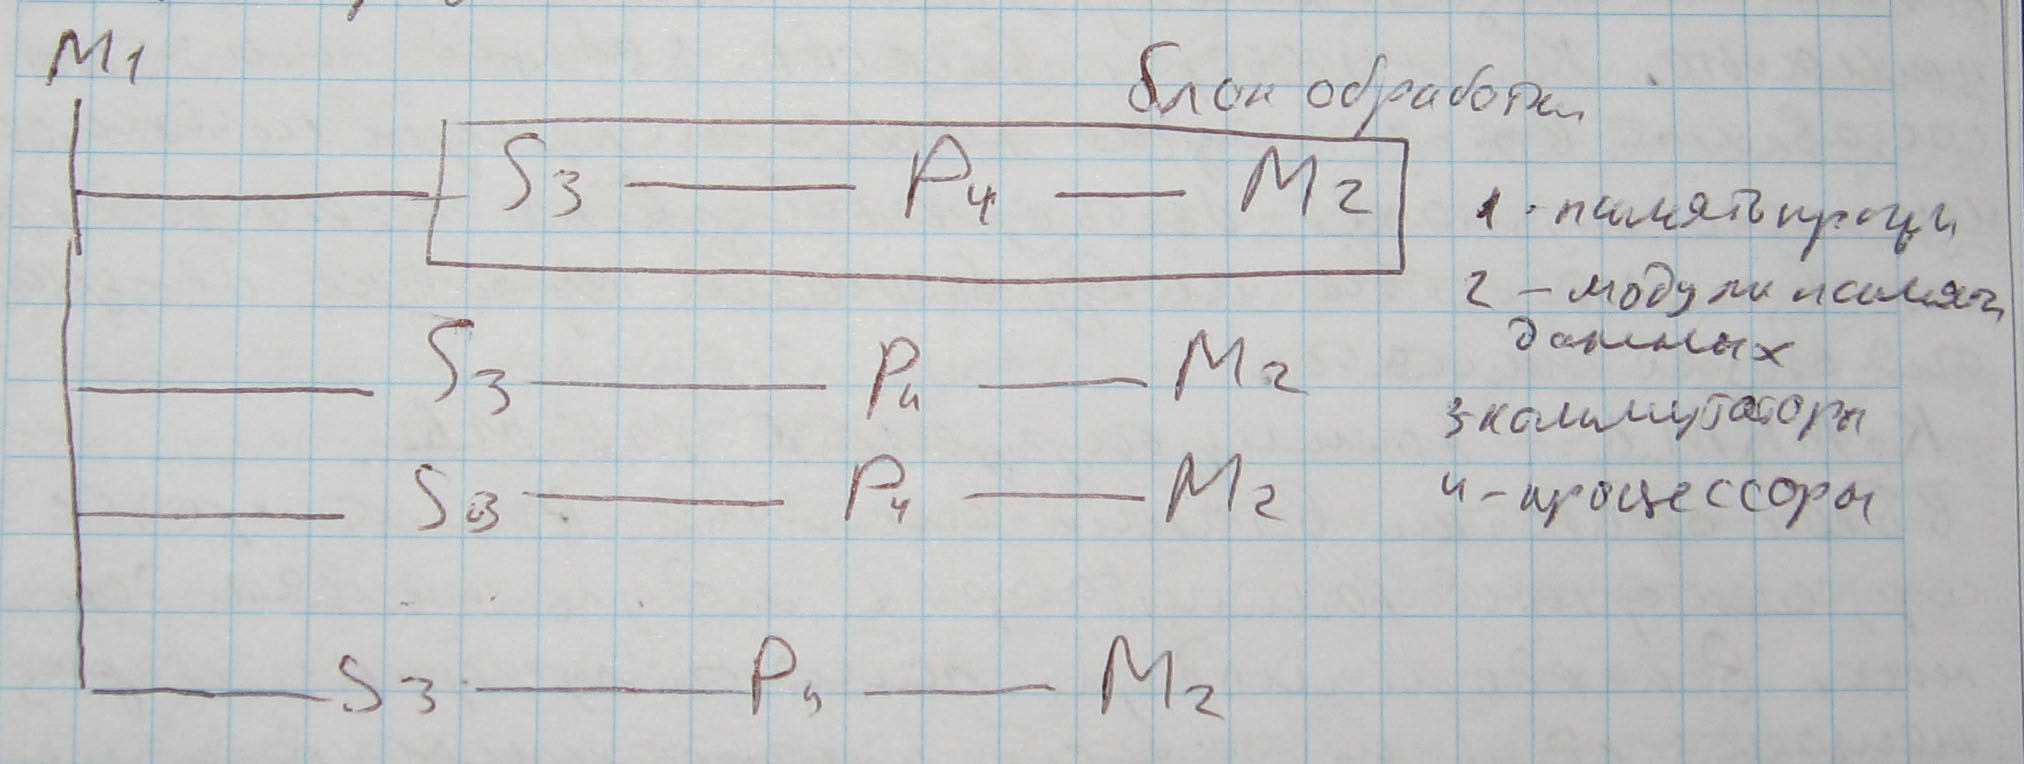 М1
блок обработки
S3 P4 M2
1 - память прогр
2 - модули память
данных
S3 P4 M2
3 коммутаторы
S3 P4 M2
4 - процессоры
S3 P4 M2